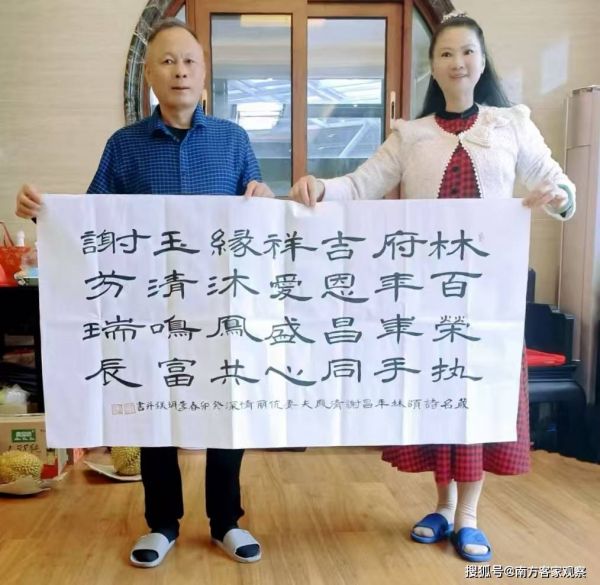 林府吉祥緣玉謝
百年恩愛沐清芬
榮年昌盛鳳鳴瑞
执手同心共富辰
藏名詩頌林年昌謝清鳳夫妻伉丽情深癸卯春并書
搜狐号@南方客家观察